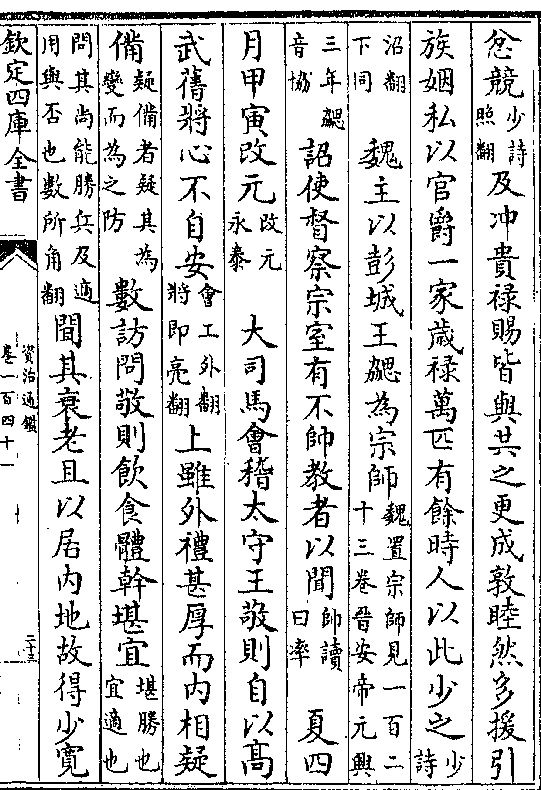 忿競少詩照翻及冲貴禄賜皆與共之更成敦睦然多援引
族姻私以官爵一家歲禄萬匹有餘時人以此少之少詩
沼翻下同　魏主以彭城王勰為宗師魏置宗師見一百二十三卷晉安帝元興
三年勰音協　詔使督察宗室有不帥教者以聞帥讀曰率　夏四
月甲寅改元改元永泰　大司馬會稽太守王敬則自以高
武舊將心不自安會工外翻將即亮翻上雖外禮甚厚而内相疑
備疑備者疑其為變而為之防數訪問敬則飲食體幹堪宜堪勝也宜適也
問其尚能勝兵及適用與否也數所角翻聞其衰老且以居内地故得少寛
欽定四庫全書
資治通鑑
卷一百四十一
二十三